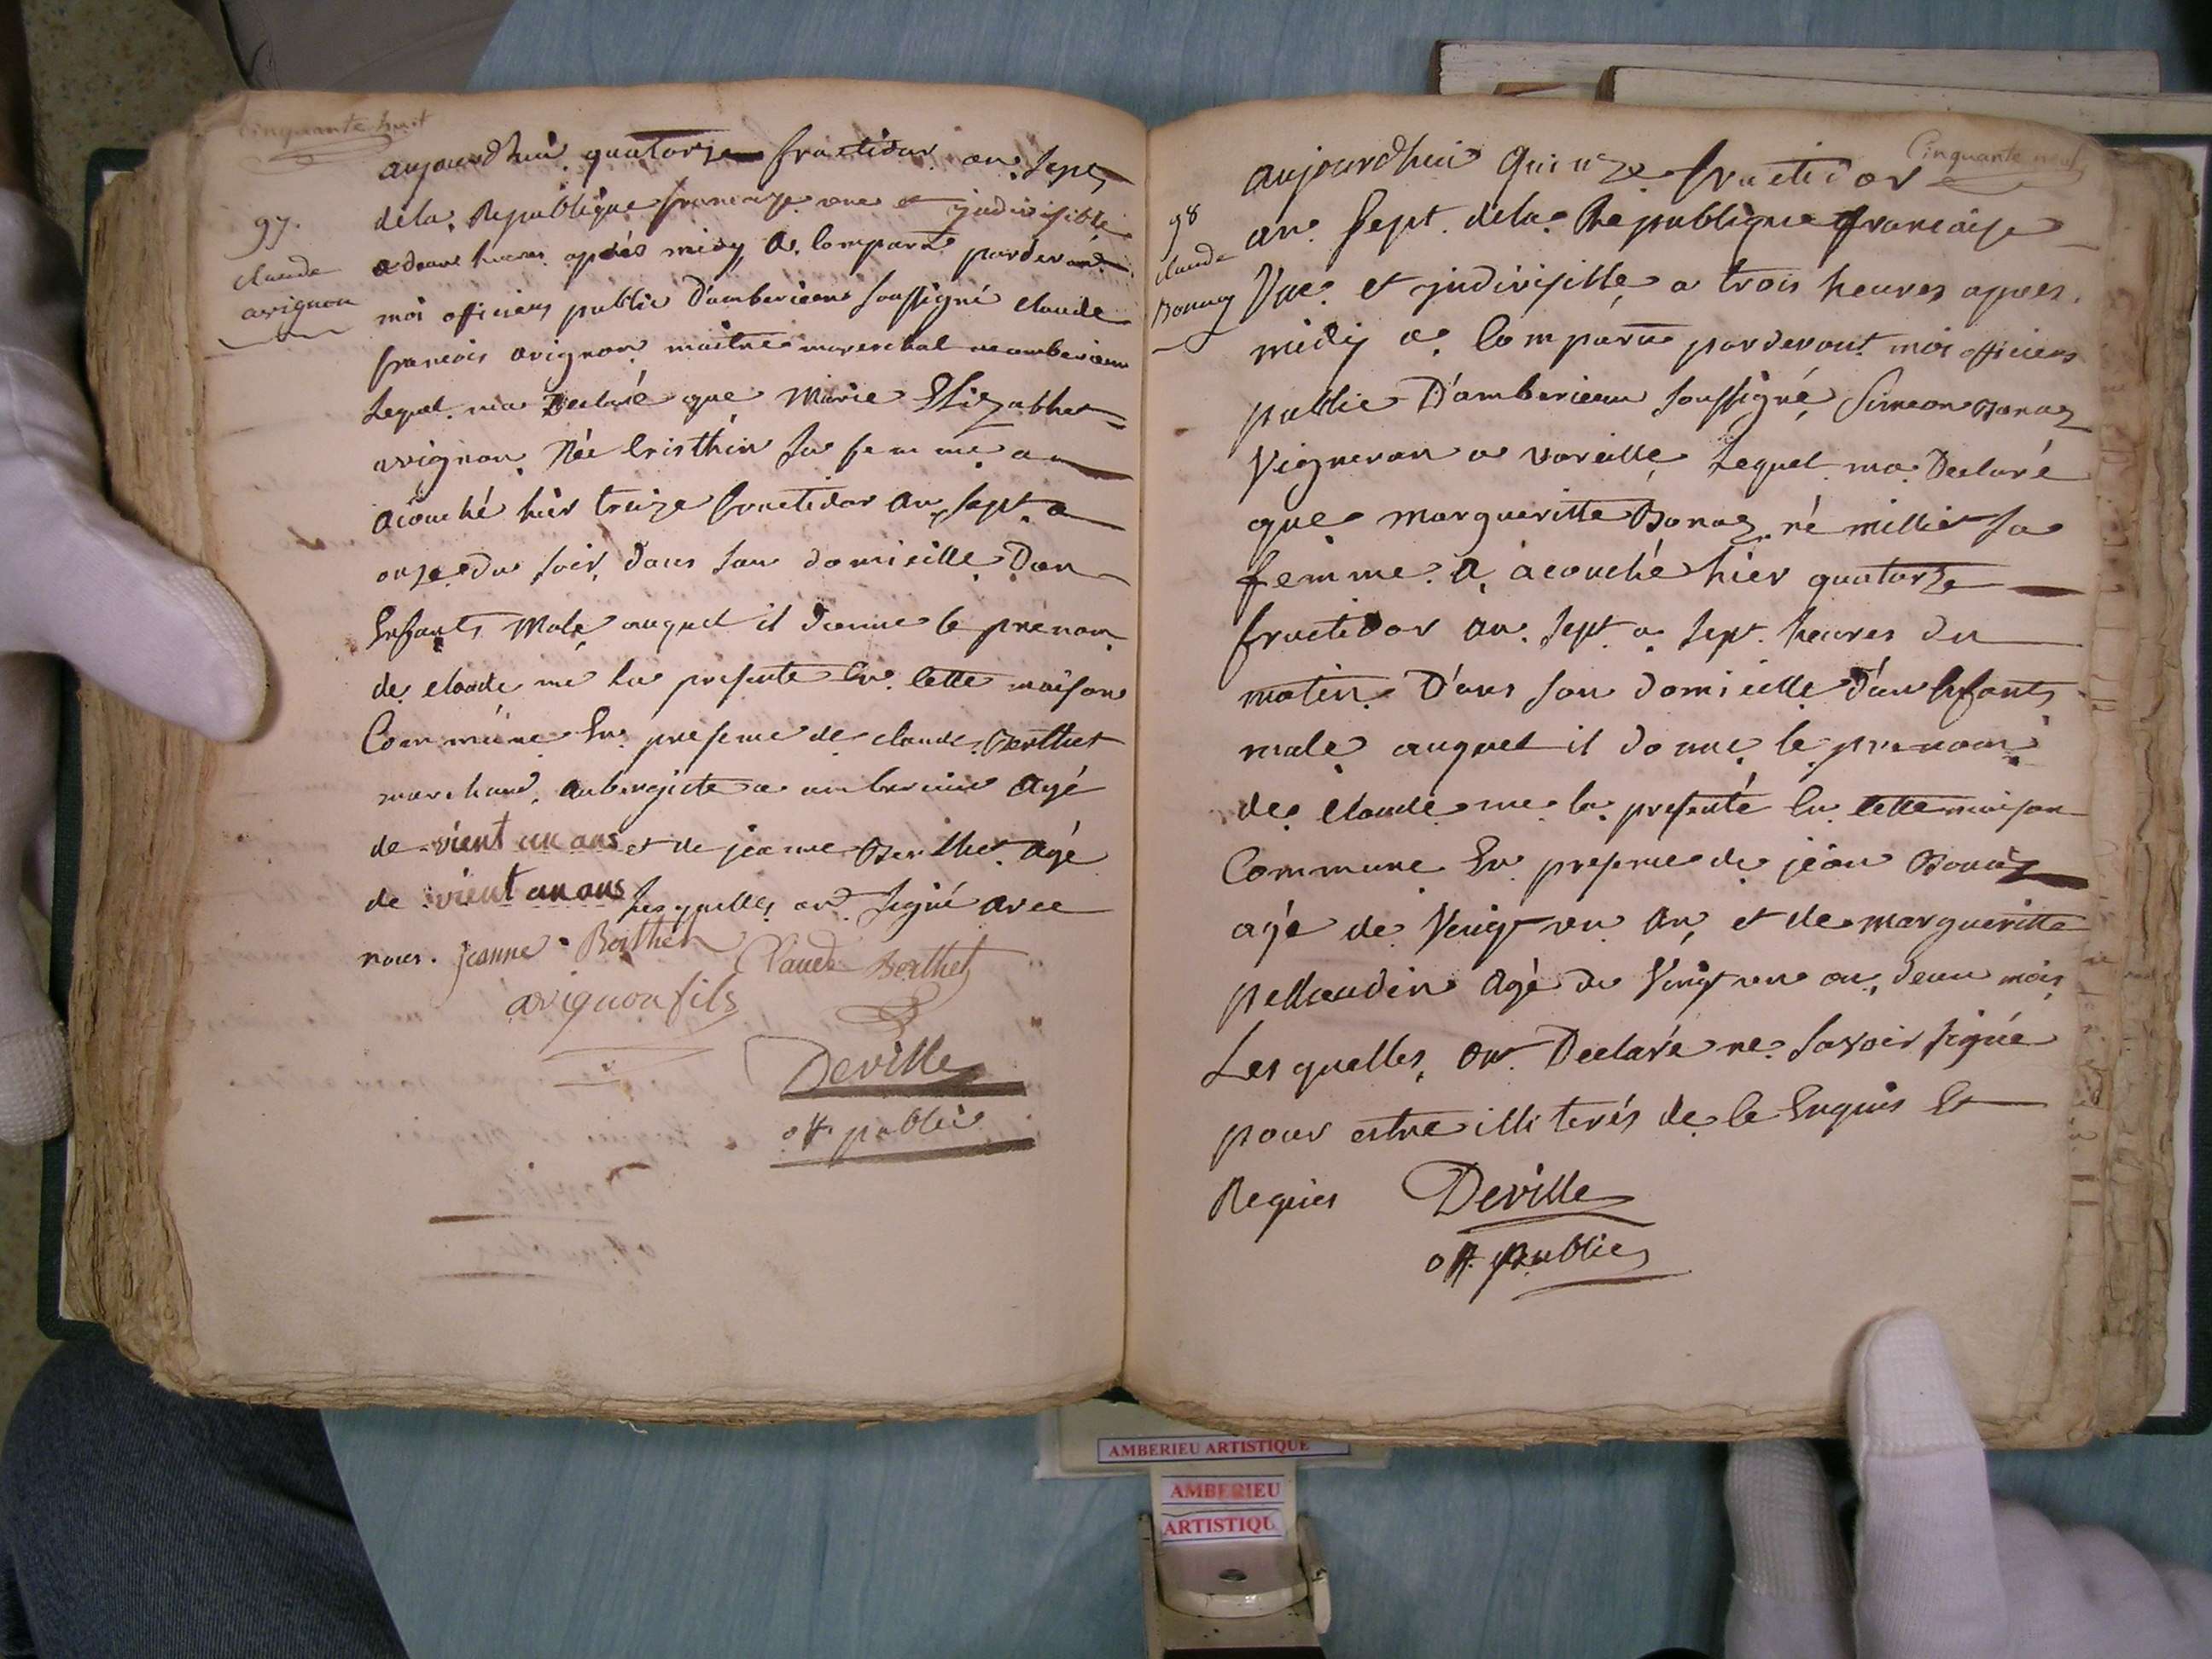 Cinquante huit
97.
claude
avignon
aujourdhui quatorze fructidor an Sept
dela Republique francaize une et jndivisible
a deux heures apprés midy, a Comparu parderant
moi officiers public D'amberieux soussigné claude
francois avignon maitre mareschal a amberieux
Lequel ma Declaré que Marie Elizabhet
avignon Née Cristhin sa femme a
acouché hier treize fructidor an sept a
onze du soir, dans son domicille Dun
Enfants Male auquel il donne le prénom
de claude me la presente En Cette maison
Commune En presence de claude Berthet
marchand, aubergiste a amberieux Agé
de vient un ans et de jeanne Berthet Agé
de vient un ans Les quelles on signé avec
nous. Jeanne Berthet Claude Berthet
avignon fils
Deville
off. public
Cinquante neuf
98
claude
Bonaz
aujourdhui Quinze fructidor
an Sept dela Republique francaise
Une et jndivisille a trois heures appres
midy a Comparu parderant moi officiers
public D'amberieux soussigné, Simeon Bonaz
Vigneron a vareille Lequel ma Declaré
que margueritte Bonaz né millier sa
femme a acouché hier quatorze
fructidor an sept a sept heures du
matin D'ans son domicille d'un Enfants
male auquel il donne le prenom
de Claude me la presenté En Cette maison
Commune En presence de jean Bonaz
agé de Vingt un an, et de margueritte
pellaudin Agé de Vingt un an, deux mois
Les quelles, on Declaré ne savoir signé
pour estre illiterés de le Enquis Et
Requis Deville
off. public
AMBERIEU ARTISTIQUE
AMBERIEU
ARTISTIQU